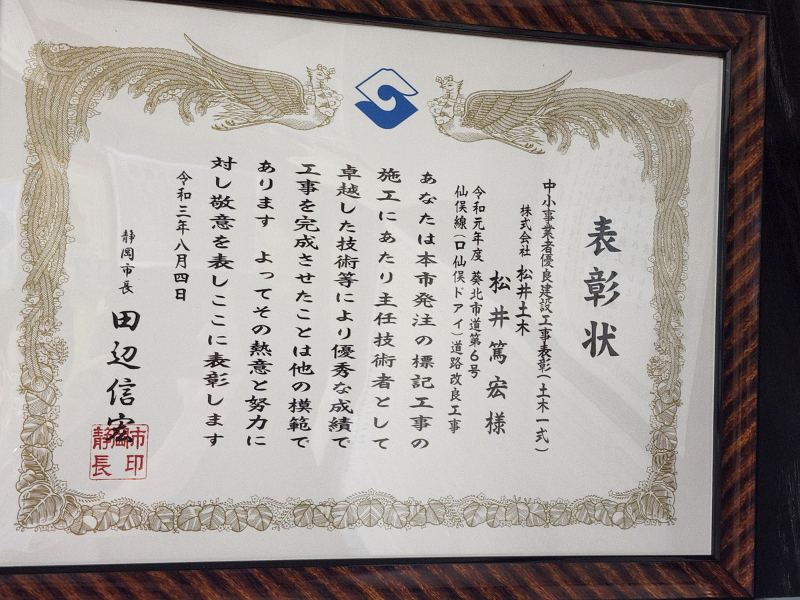 表彰状
中小事業者優良建設工事表彰(土木一式)
株式会社 松井土木
松井篤宏様
令和元年度 葵北市道第6号
仙俣線(口仙俣ドアイ)道路改良工事
あなたは本市発注の標記工事の
施工にあたり主任技術者として
卓越した技術等により優秀な成績で
工事を完成させたことは他の模範で
あります よってその熱意と努力に
対し敬意を表しここに表彰します
令和三年八月四日
静岡市長 田辺信宏
静岡市長印